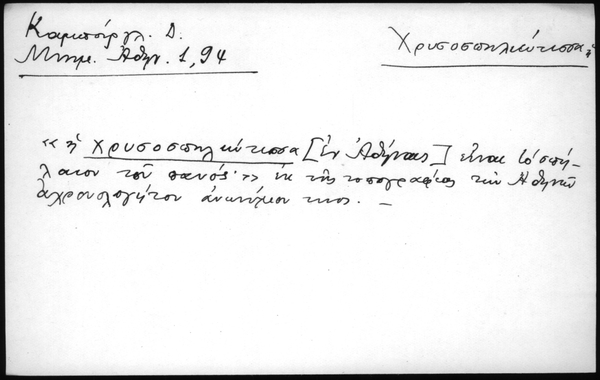 Καμπούργλ. Δ.
Μνημ. Ἀθην. 1, 94
Χρυσοσπηλιώτισσα, ἡ
«ἡ Χρυσοσπηλιώτισσα [ἐν Ἀθήναις] εἶναι τὸ σπή-
λαιον τοῦ πανός·» ἐκ τῆς τοπογραφίας τῶν Ἀθηνῶν
ἀχρονολογήτου ἀνωνύμου τινος. –